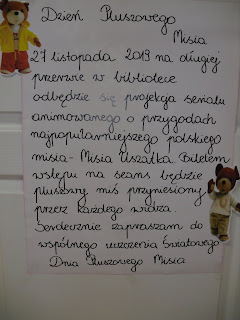 Dzień Pluszowego
Misia
27 listopada 2019 na długiej
przerwie w bibliotece
odbędzie się projekcja serialu
animowanego o przygodach
najpopularniejszego polskiego
misia - Misia Uszatka. Biletem
wstępu na seans będzie
pluszowy miś przyniesiony
przez każdego widza.
Serdecznie zapraszam do
wspólnego uczczenia Światowego
Dnia Pluszowego Misia